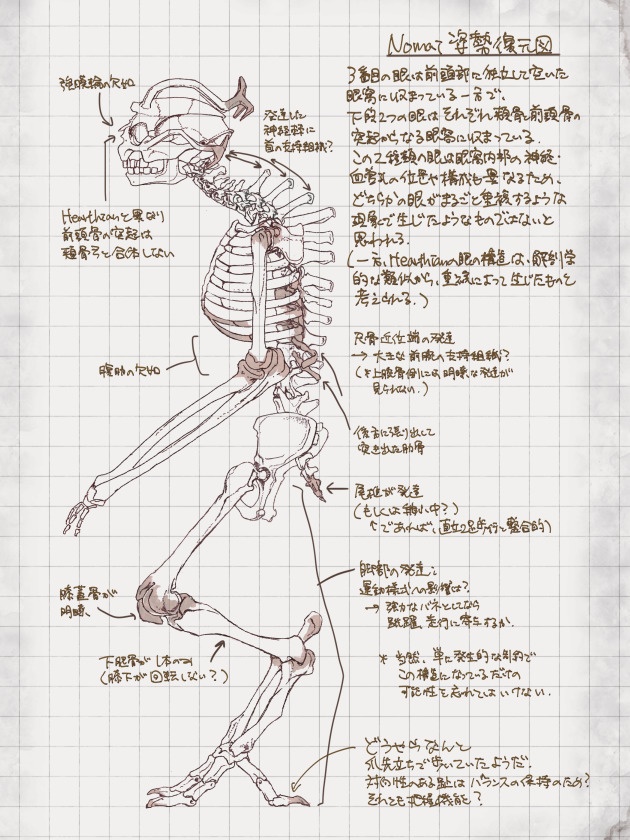 Nomai 姿勢復元図
3番目の眼は前頭部に独立して空いた
眼窩に収まっている一方で、
下段2つの眼はそれぞれ頬骨と前頭骨の
突起がなる眼窩に収まっている.
この2種類の眼は眼窩内部の神経・
血管孔の位置や構成も異なるため、
どちらかの眼がまるごと重複するような
現象で生じたようなものではないと
思われる.
(一方、Hearthianの眼の構造は、解剖学
的な類似から、重複によって生じたものと
考えられる.)
強膜輪の欠如
発達した
神経棘に
首の支持組織?
Hearthianと異なり
前頭骨の突起は
頬骨弓と合体しない
尺骨近位端の発達
→ 大きな前腕の支持組織?
(*上腕骨側には明瞭な発達が
見られない.)
腹肋の欠如
後方に張り出して
突き出た肋骨
尾椎が発達
(もしくは縮小中?)
↑であれば、直立2足歩行と整合的)
脚部の発達:
運動様式への影響は?
→ 強力なバネとしてなら
跳躍、走行に寄与するか.
膝蓋骨が
明瞭、
下腿骨が1本のみ
(膝下が回転しない?)
* 当然、単に発生的な制約で
この構造になっているだけの
可能性を忘れてはいけない.
どうやらなんと
爪先立ちで歩いていたようだ.
対向性のある趾はバランスの保持のため?
それとも把握機能?